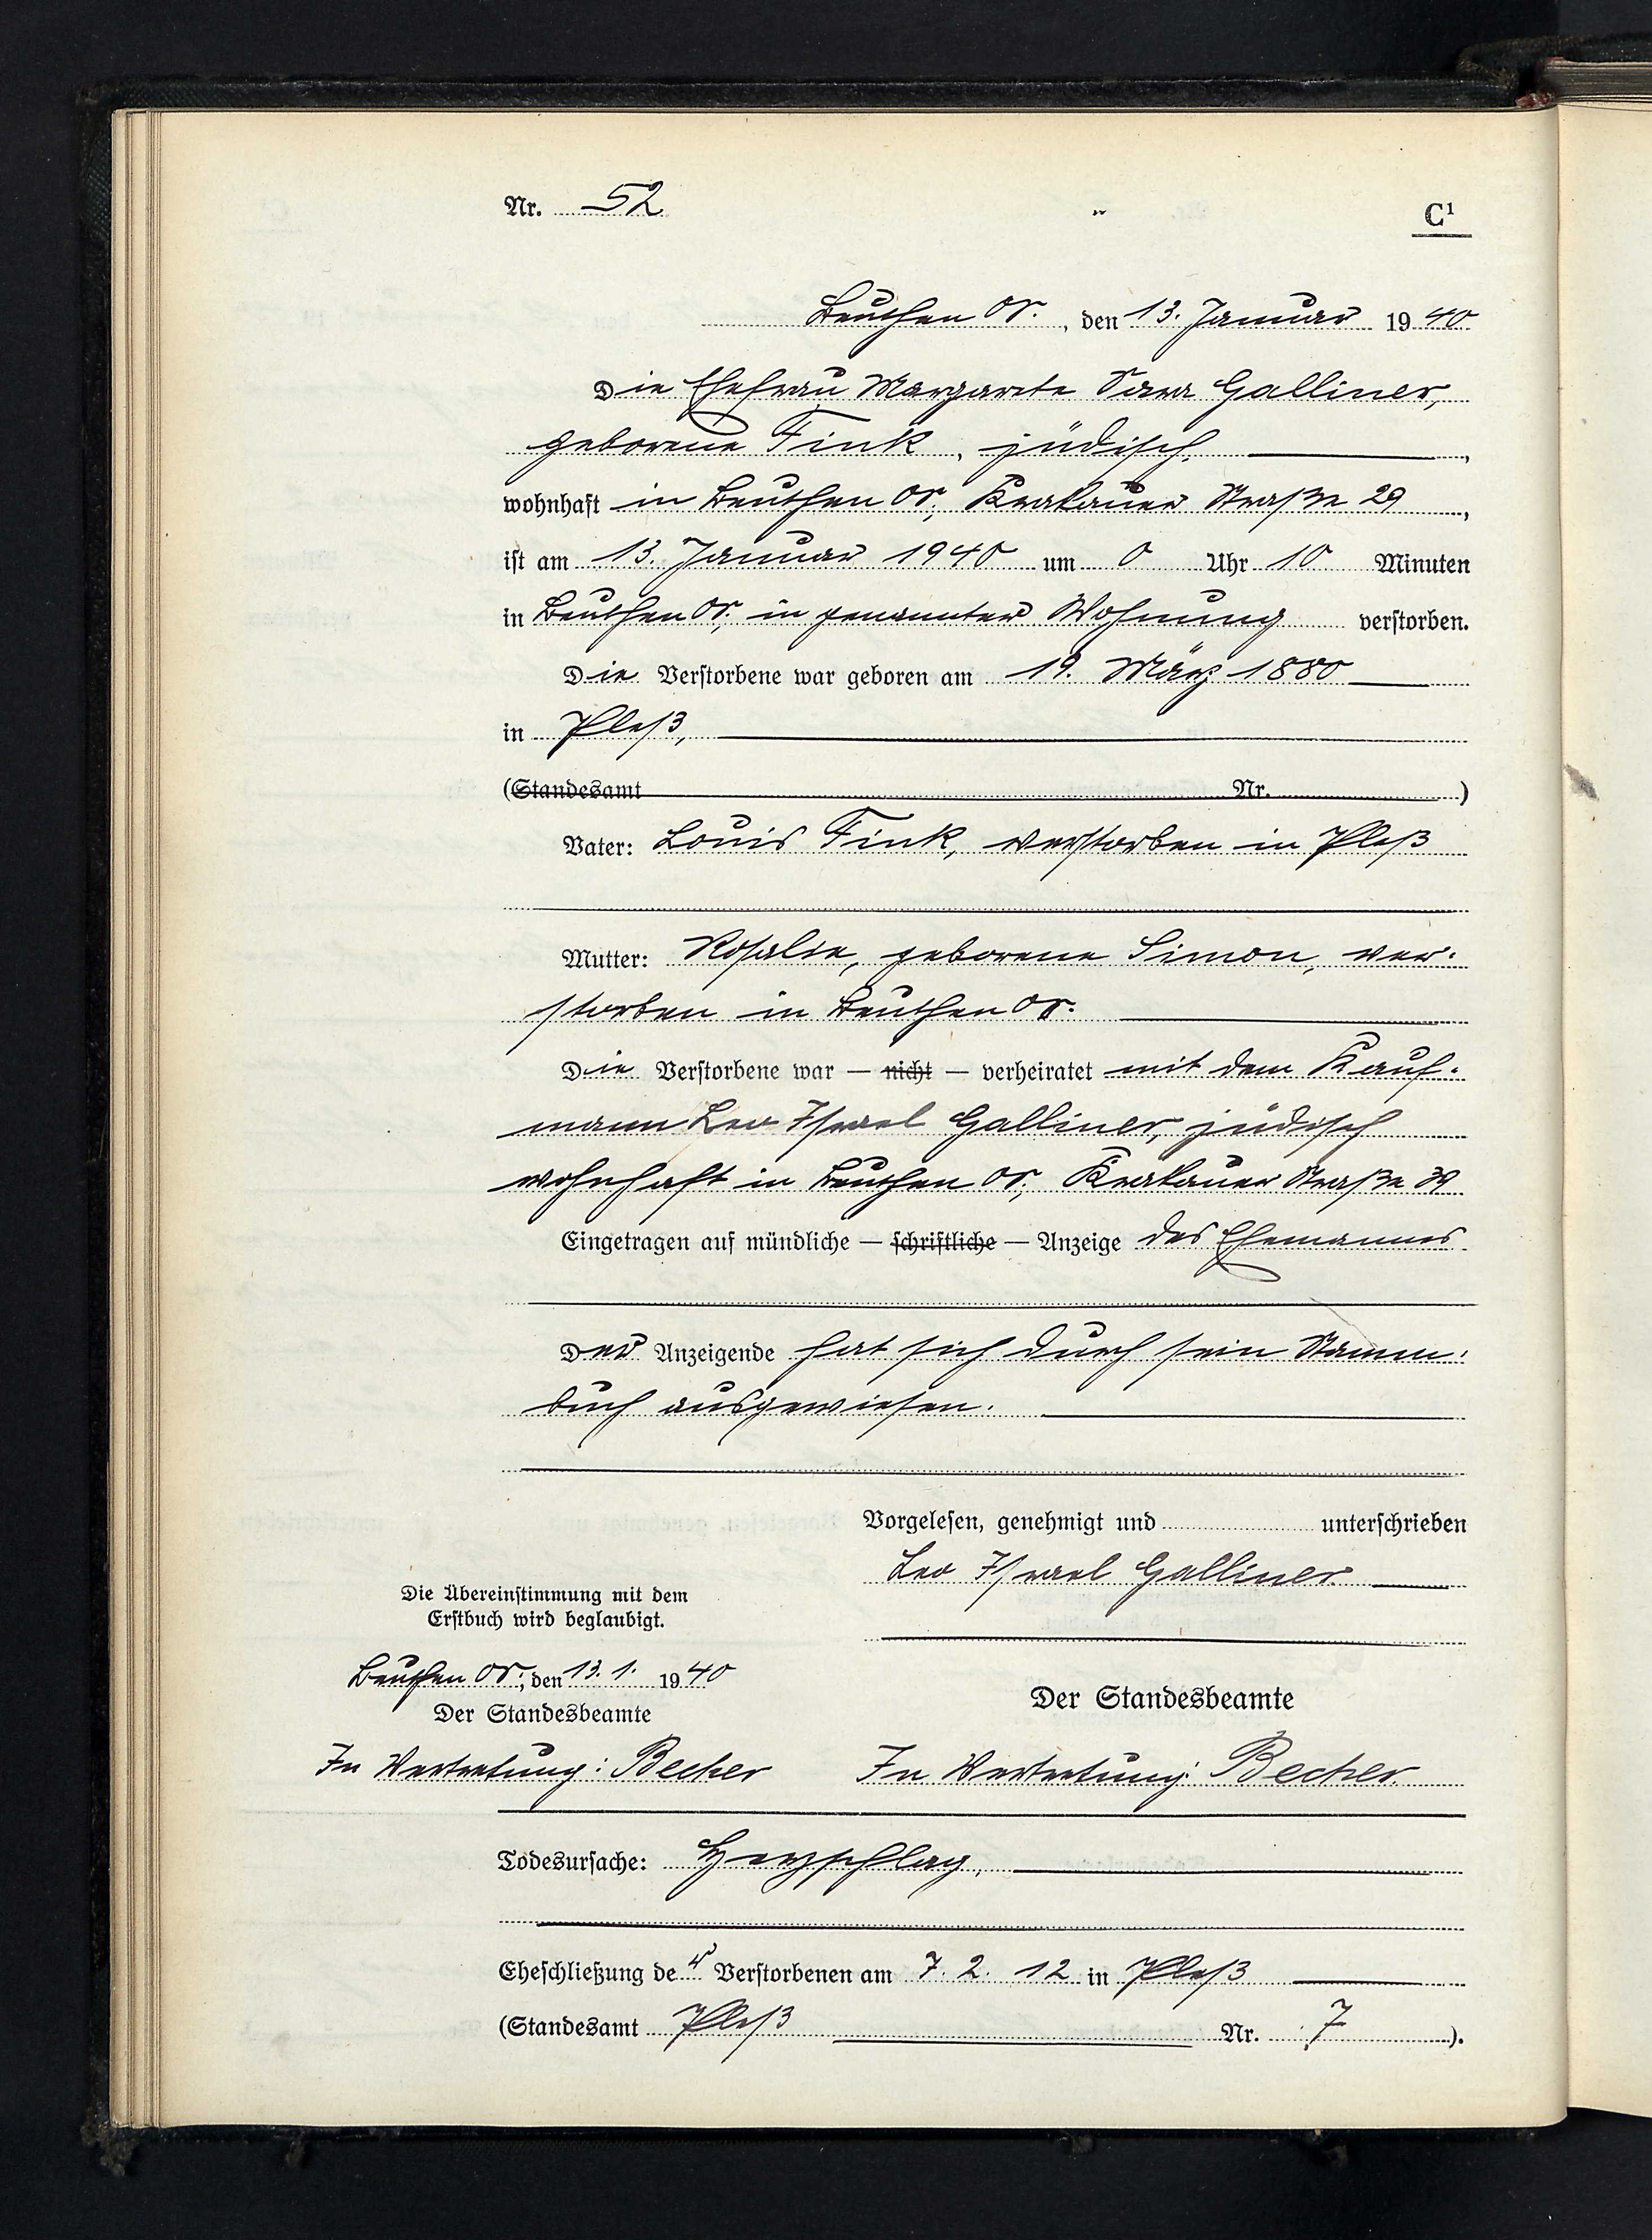 Nr. 52
C¹
Beuthen OS. , den 13. Januar 1940
Die Ehefrau Margarete Sara Galliner,
geborene Fink, jüdisch,
wohnhaft in Beuthen OS, Krakauer Straße 29,
ist am 13. Januar 1940 um 0 Uhr 10 Minuten
in Beuthen OS, in genannter Wohnung verstorben.
Die Verstorbene war geboren am 19. März 1880
in Pleß,
(Standesamt Nr. )
Vater: Louis Fink, verstorben in Pleß
Mutter: Rosalie, geborene Simon, ver-
storben in Beuthen OS.
Die Verstorbene war — nicht — verheiratet mit dem Kauf-
mann Leo Israel Galliner, jüdisch
wohnhaft in Beuthen OS, Krakauer Straße
Eingetragen auf mündliche — schriftliche — Anzeige des Ehemannes
Der Anzeigende hat sich durch sein Stamm-
buch ausgewiesen.
Vorgelesen, genehmigt und unterschrieben
Leo Israel Galliner
Die Übereinstimmung mit dem
Erstbuch wird beglaubigt.
Beuthen OS, den 13. 1. 1940
Der Standesbeamte
In Vertretung: Becher
Der Standesbeamte
In Vertretung: Becher
Todesursache: Herzschlag,
Eheschließung der Verstorbenen am 7. 2. 12 in Pleß
(Standesamt Pleß Nr. 7 ).